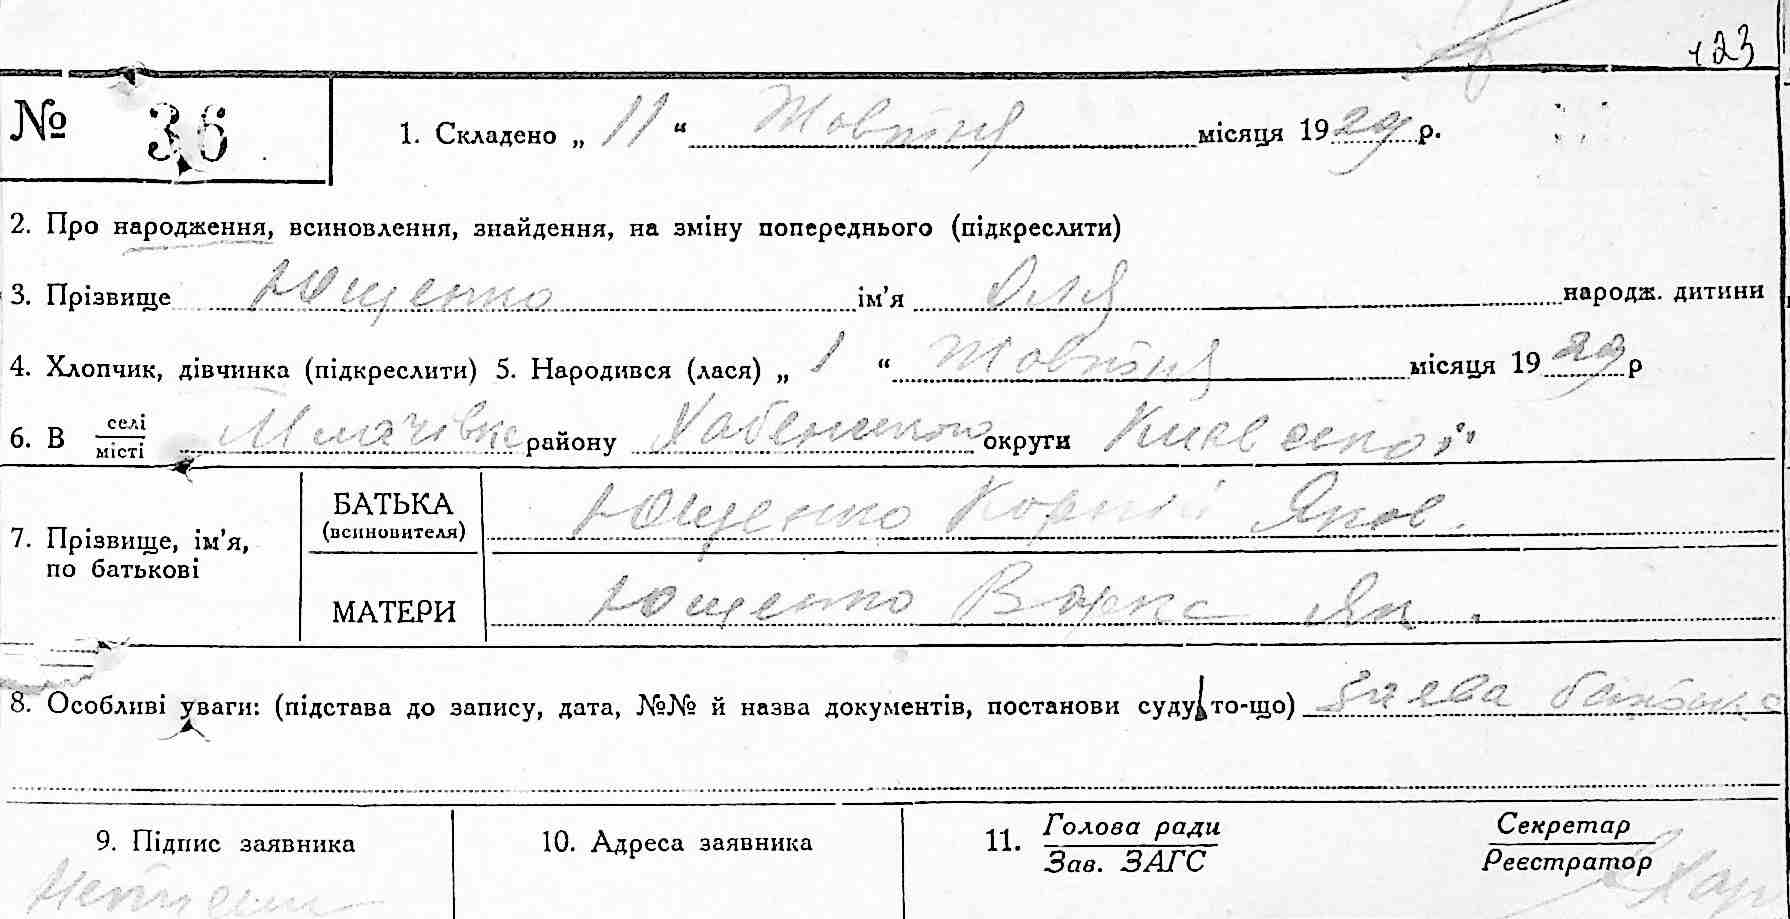 123
№ 36
1. Складено „ 11 “ Жовтня місяця 1929 р.
2. Про народження, всиновлення, знайдення, на зміну попереднього (підкреслити)
3. Прізвище Ющенко ім’я Оля народж. дитини
4. Хлопчик, дівчинка (підкреслити) 5. Народився (лася) „ 1 “ Жовтня місяця 1929 р
6. В селі / місті Млачівка району Хабенського округи Киевської
7. Прізвище, ім’я, по батькові
БАТЬКА (всиновителя) Ющенко Корній Яков.
МАТЕРИ Ющенко Варка Як.
8. Особливі уваги: (підстава до запису, дата, №№ й назва документів, постанови суду то-що) заява батька
9. Підпис заявника 10. Адреса заявника 11. Голова ради / Зав. ЗАГС Секретар / Реєстратор